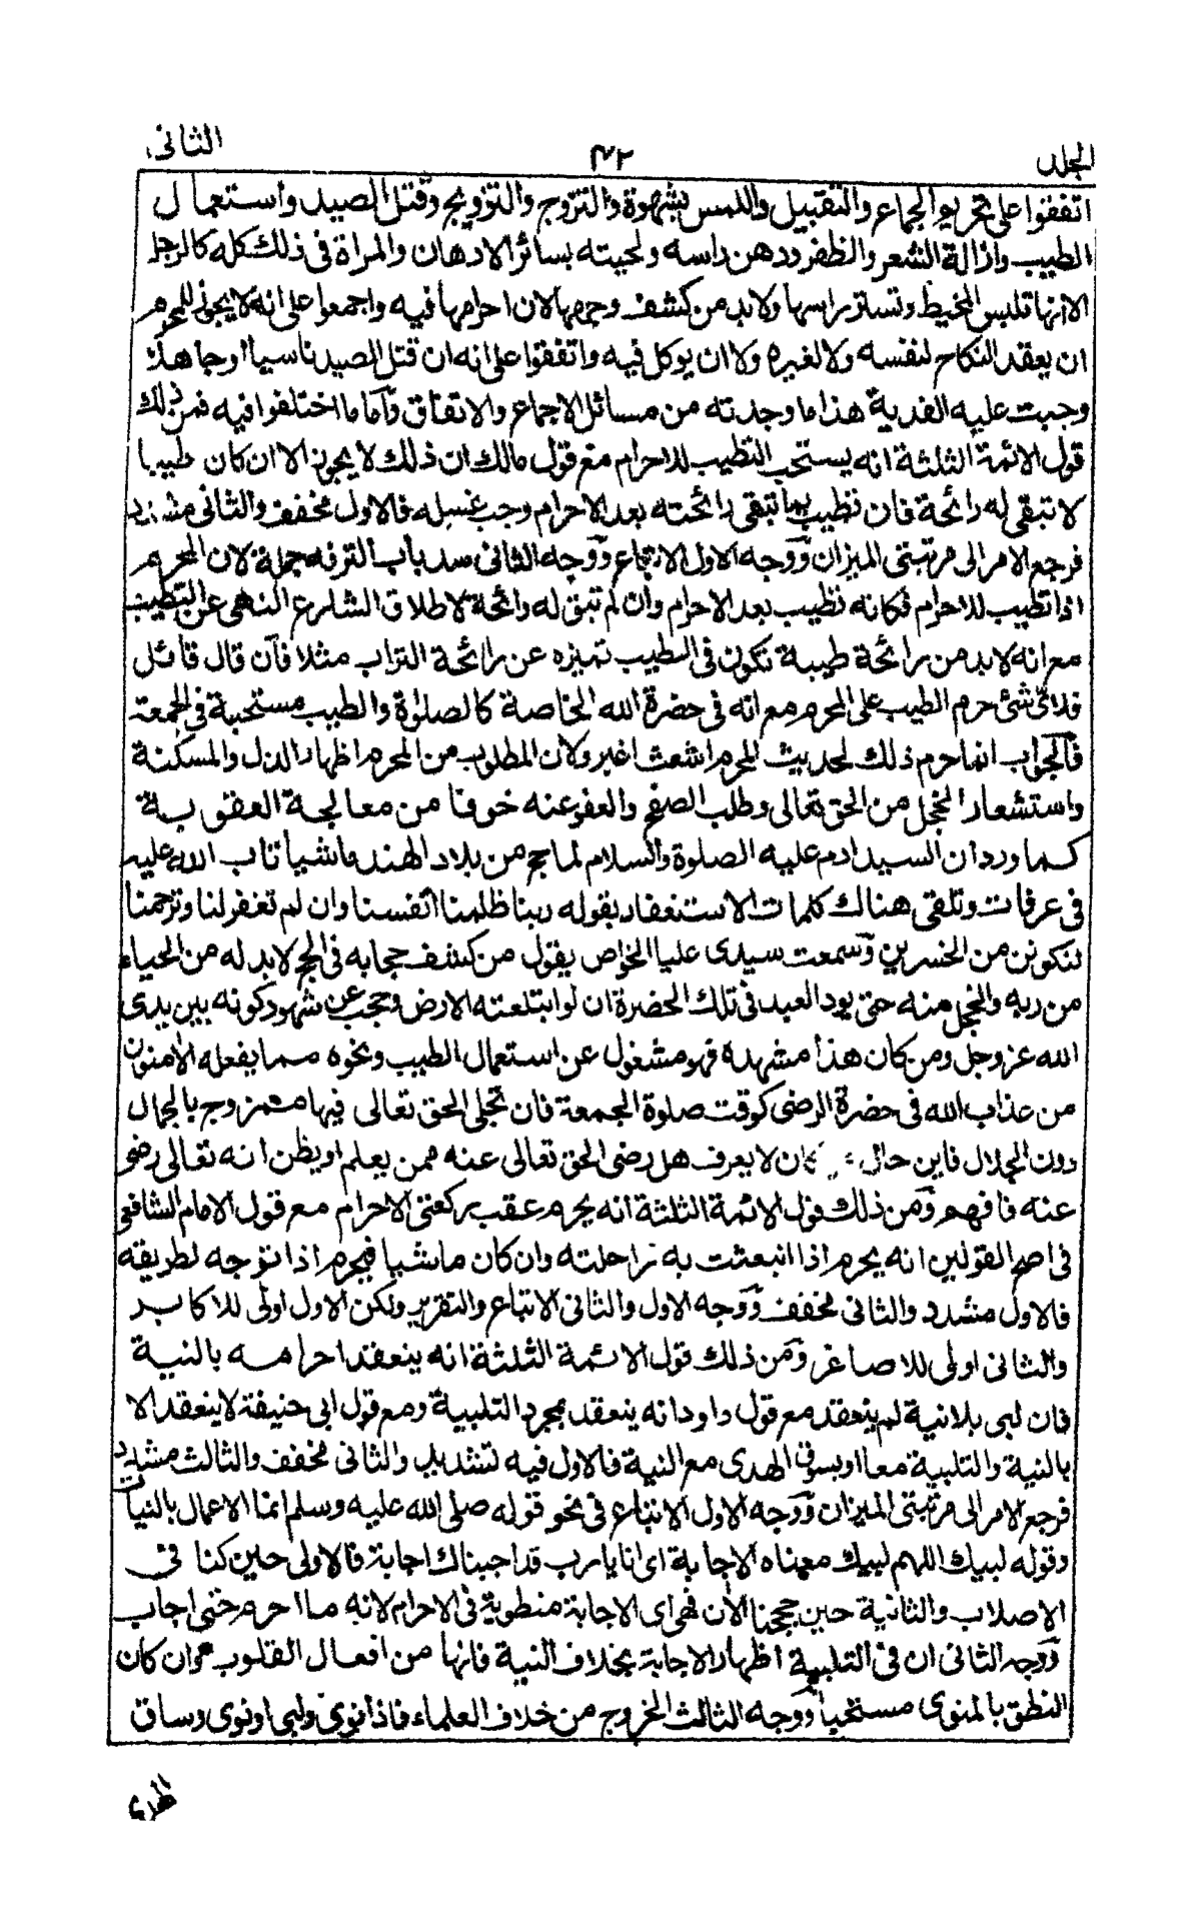 المجلد
٤٢
الثانى
اتفقوا على تحريم الجماع والتقبيل واللمس بشهوة والتزوج والتزويج وقتل الصيد واستعمال
الطيب وازالة الشعر والظفر ودهن راسه ولحيته بسائر الادهان والمراة فى ذلك كله كالرجل
الا انها تلبس المخيط وتستر راسها ولابد من كشف وجهها لان احرامها فيه واجمعوا على انه لا يجوز للمحرم
ان يعقد النكاح لنفسه ولا لغيره ولا ان يوكل فيه واتفقوا على انه ان قتل الصيد ناسيا او جاهلا
وجبت عليه الفدية هذا ما وجدته من مسائل الاجماع والاتفاق وآما ما اختلفوا فيه فمن ذلك
قول الائمة الثلثة انه يستحب التطيب للاحرام مع قول مالك ان ذلك لا يجوز الا ان كان طيبا
لا تبقى له رائحة فان تطيب بما تبقى رائحته بعد الاحرام وجب غسله فالاول مخفف والثانى مشدد
فرجع الامر الى مرتبتى الميزان ووجه الاول الاتباع ووجه الثانى سد باب الترفه جملة لان المحرم
اذا تطيب للاحرام فكانه تطيب بعد الاحرام وان لم تبق له رائحة لاطلاق الشارع النهى عن التطيب
مع انه لابد من رائحة طيبة تكون فى الطيب تميزه عن رائحة التراب مثلا فآن قال قائل
فلاىّ شئ حرم الطيب على المحرم مع انه فى حضرة الله الخاصة كالصلوة والطيب مستحبة فى الجمعة
فآلجواب انما حرم ذلك لحديث المحرم اشعث اغبر ولان المطلوب من المحرم اظهار الذل والمسكنة
واستشعار الخجل من الحق تعالى وطلب الصفح والعفو عنه خوفا من معالجة العقوبة
كما ورد ان السيد ادم عليه الصلوة والسلام لما حج من بلاد الهند ماشيا تاب الله عليه
فى عرفات وتلقى هناك كلمات الاستغفار بقوله ربنا ظلمنا انفسنا وان لم تغفر لنا وترحمنا
لنكونن من الخسرين وسمعت سيدى عليا الخواص يقول من كشف حجابه فى الحج لابد له من الحياء
من ربه والخجل منه حتى يود العبد فى تلك الحضرة ان لو ابتلعته الارض وحجب عن شهود كونه بين يدى
الله عز وجل ومن كان هذا مشهده فهو مشغول عن استعمال الطيب ونحوه مما يفعله الأمنون
من عذاب الله فى حضرة الرضى كوقت صلوة الجمعة فان تجلى الحق تعالى فيها ممزوج بالجمال
دون الجلال فاين حال كان لا يعرف هل رضى الحق تعالى عنه ممن يعلم او يظن انه تعالى رضى
عنه فافهم ومن ذلك قول الائمة الثلثة انه يحرم عقب ركعتى الاحرام مع قول الامام الشافعى
فى اصح القولين انه يحرم اذا انبعثت به راحلته وان كان ماشيا فيحرم اذا توجه لطريقه
فالاول مشدد والثانى مخفف ووجه الاول والثانى الاتباع والتقرير ولكن الاول اولى للاكابر
والثانى اولى للاصاغر ومن ذلك قول الائمة الثلثة انه ينعقد احرامه بالنية
فان لبى بلا نية لم ينعقد مع قول داود انه ينعقد بمجرد التلبية ومع قول ابى حنيفة لا ينعقد الا
بالنية والتلبية معا او بسوق الهدى مع النية فالاول فيه تشديد والثانى مخفف والثالث مشدد
فرجع الامر الى مرتبتى الميزان ووجه الاول الاتباع فى نحو قوله صلى الله عليه وسلم انما الاعمال بالنيات
وقوله لبيك اللهم لبيك معناه الاجابة اى انا يا رب قد اجبناك اجابة فالاولى حين كنا فى
الاصلاب والثانية حين حججنا الأن فهى اى الاجابة منطوية فى الاحرام لانه ما احرم حتى اجاب
ووجه الثانى ان فى التلبية اظهار الاجابة بخلاف النية فانها من افعال القلوب وان كان
النطق بالمنوى مستحبا ووجه الثالث الخروج من خلاف العلماء فاذا نوى ولبى او نوى وساق
الهدى